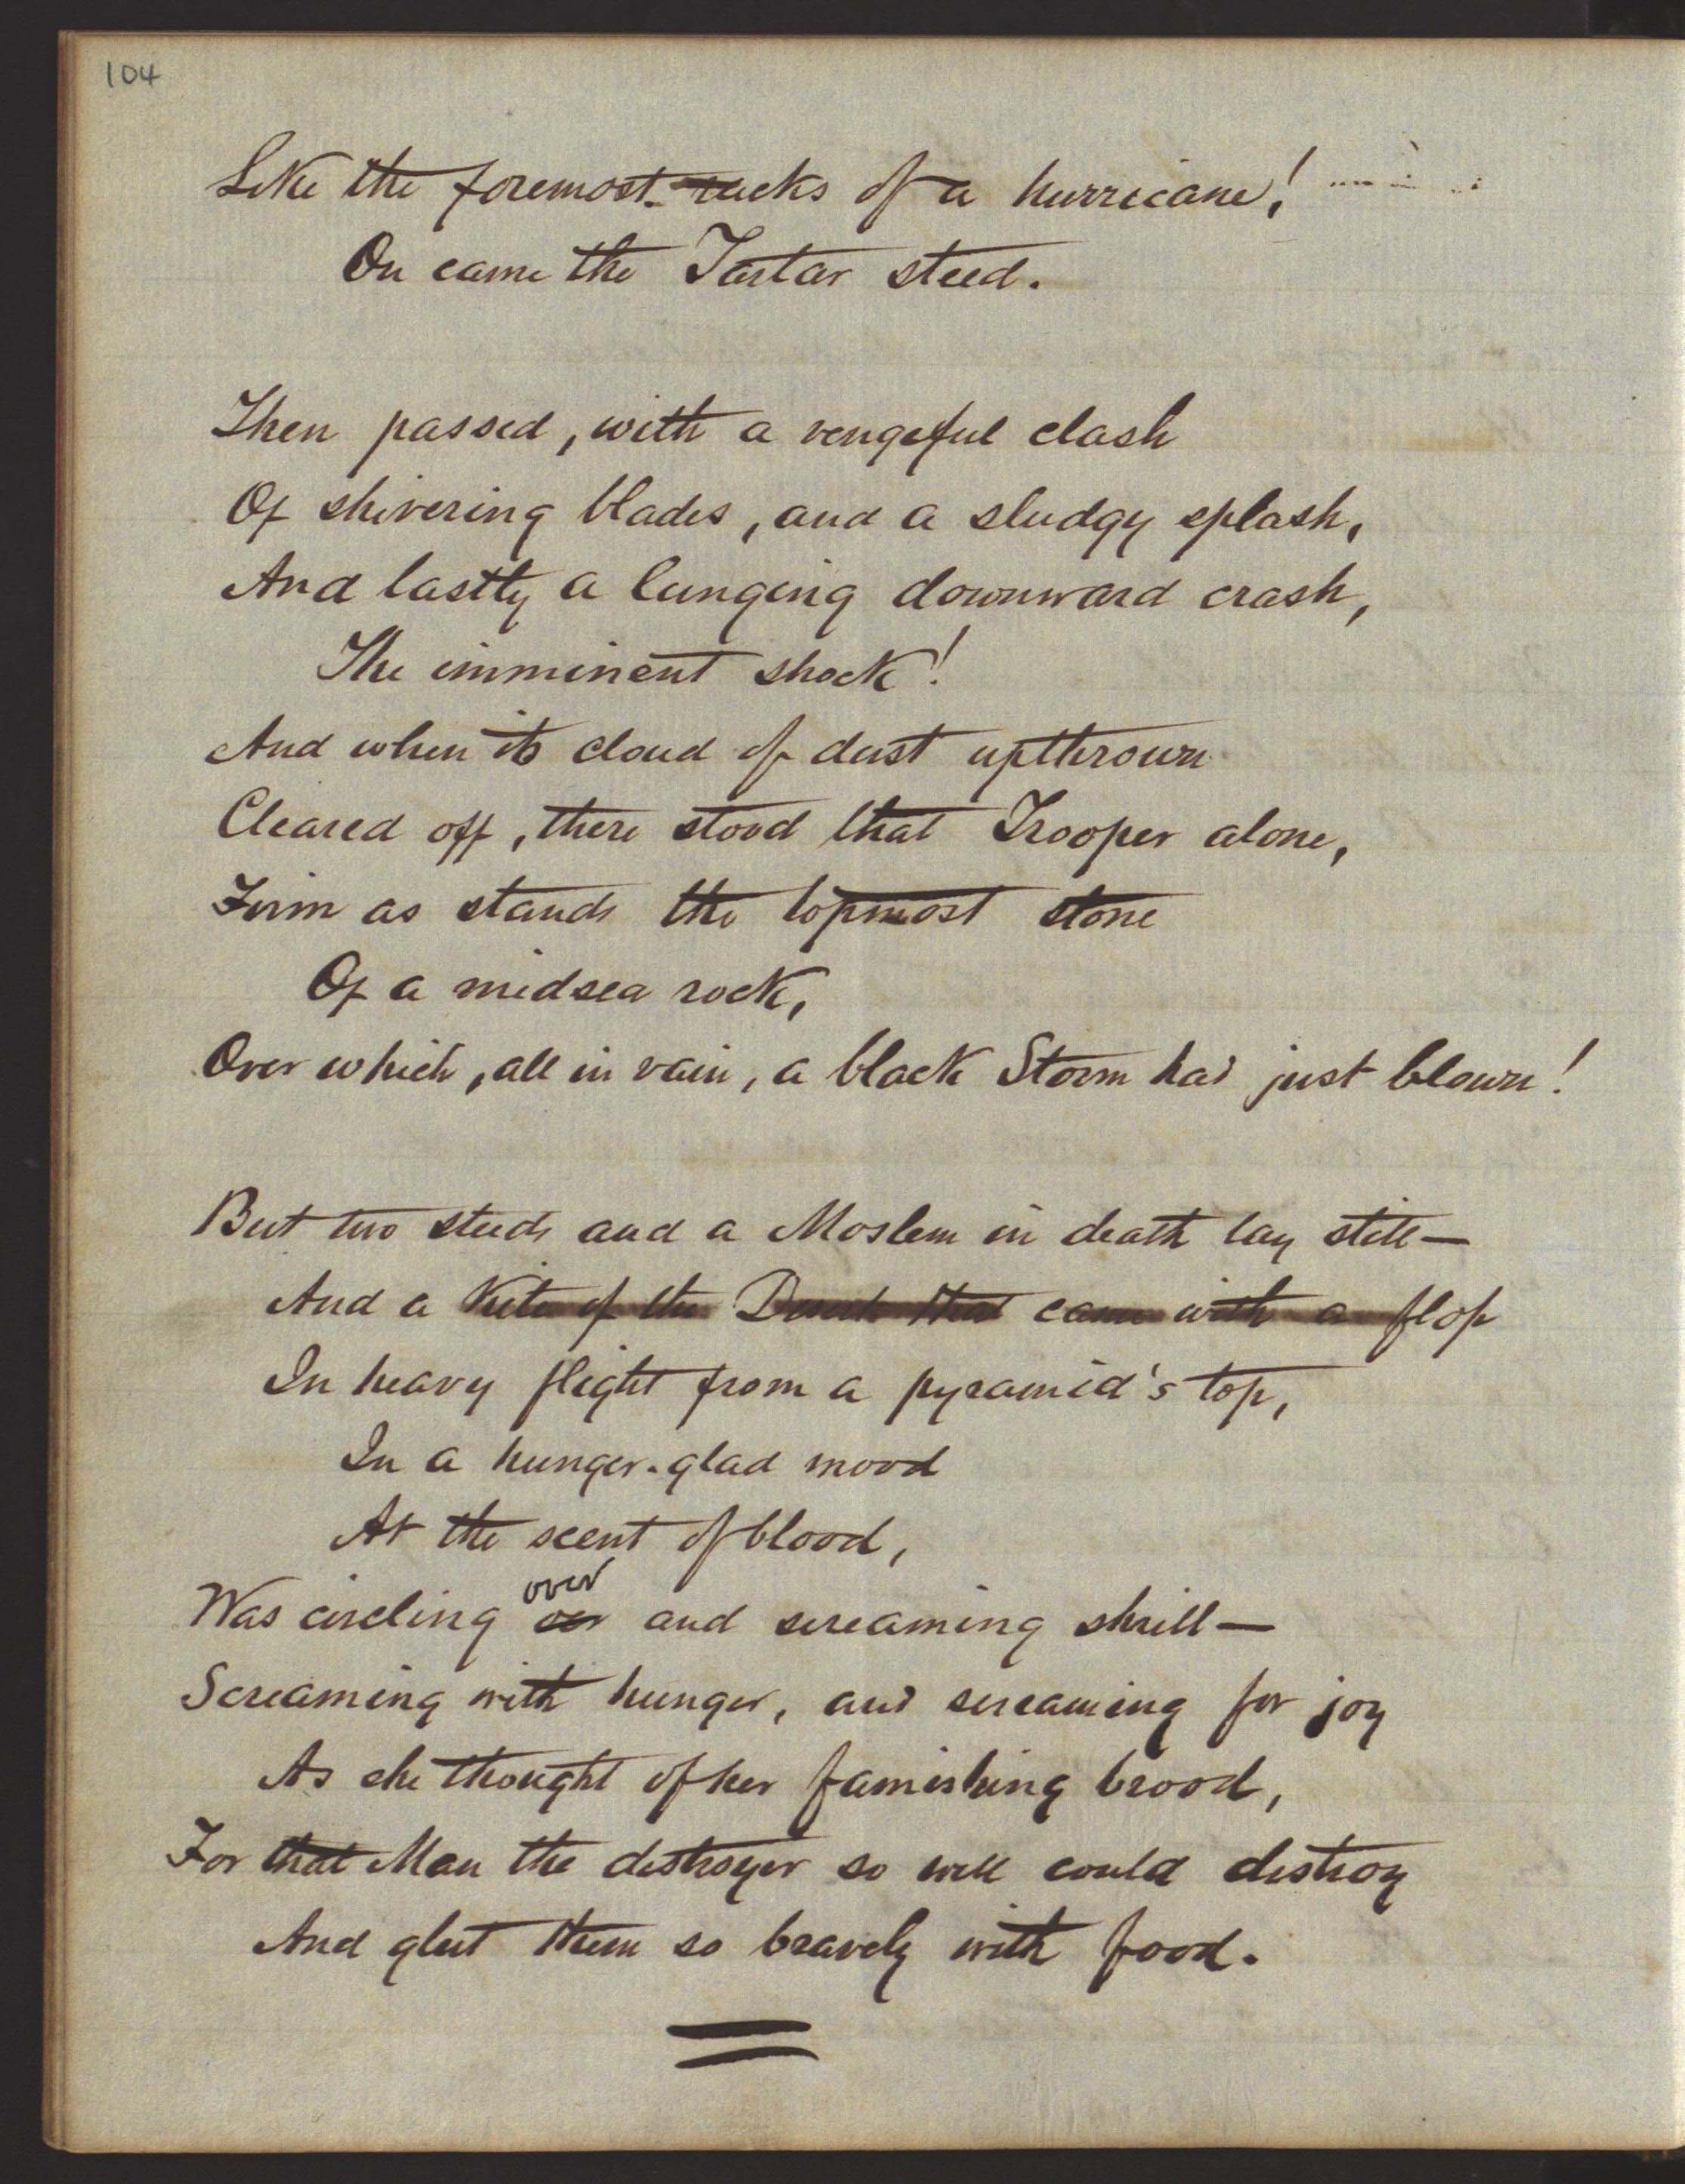 104
Like the foremost racks of a hurricane!
On came the Tartar steed.
Then passed, with a vengeful clash
Of shivering blades, and a sludgy splash,
And lastly a lunging downward crash,
The imminent shock!
And when its cloud of dust upthrown
Cleared off, there stood that Trooper alone,
Firm as stands the topmost stone
Of a midsea rock,
Over which, all in vain, a black Storm had just blown!
But two steeds and a Moslem in death lay still—
And a Kite of the Desert that came with a flop
In heavy flight from a pyramid's top,
In a hunger-glad mood
At the scent of blood,
over
Was circling oer and screaming shrill—
Screaming with hunger, and screaming for joy
As she thought of her famishing brood,
For that Man the destroyer so well could destroy
And glut them so bravely with food.